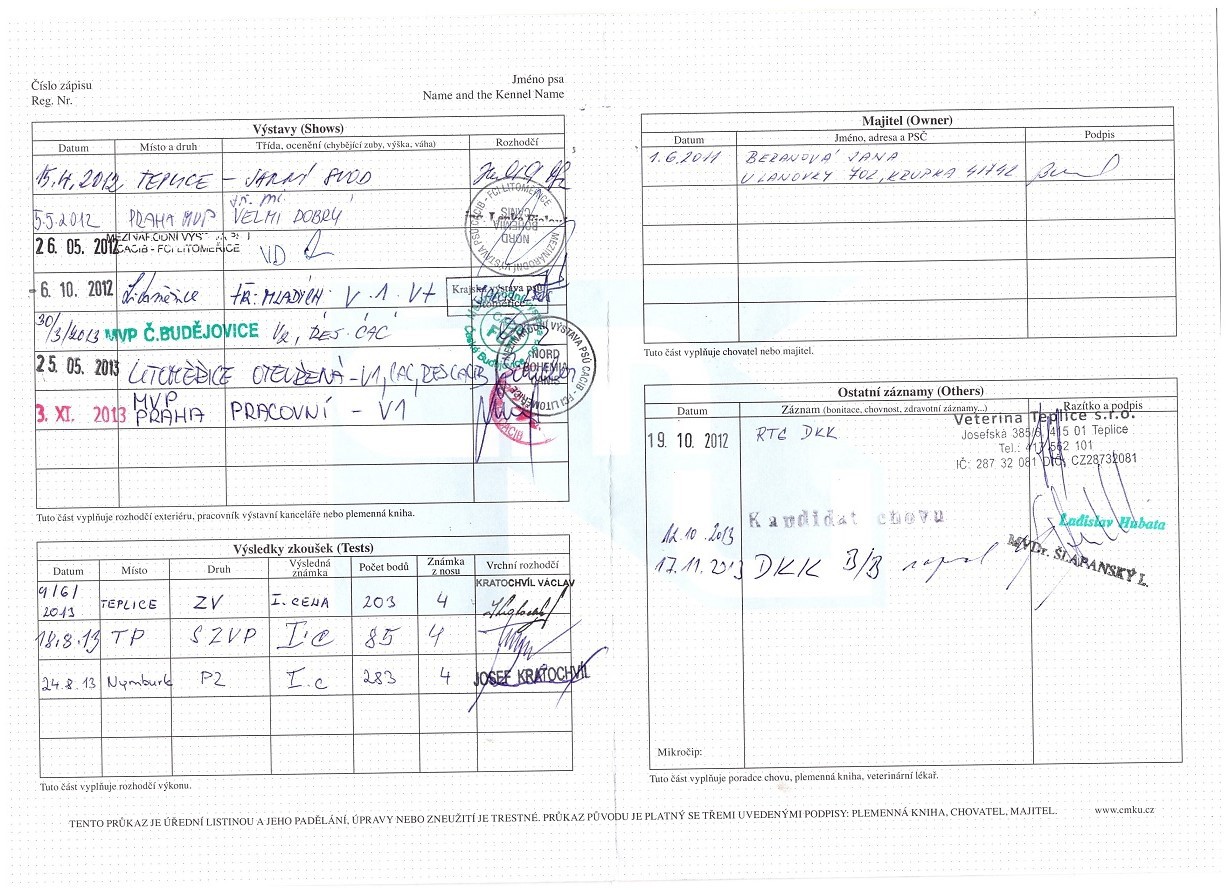 Číslo zápisu
Reg. Nr.
Jméno psa
Name and the Kennel Name
Výstavy (Shows)
Datum Místo a druh Třída, ocenění (chybějící zuby, výška, váha) Rozhodčí
15.4.2012 TEPLICE - JARNÍ SVOD
5.5.2012 PRAHA MVP VELMI DOBRÝ
26. 05. 2012 MEZINÁRODNÍ VÝST
CACIB - FCI LITOMĚŘICE
VD
- 6. 10. 2012 Litoměřice tř. MLADÝCH V 1 VT
Krajská výstava psů
Litoměřice
30/3/2013 MVP Č.BUDĚJOVICE V2, RES. CAC
25. 05. 2013 LITOMĚŘICE OTEVŘENÁ - V1, CAC, RES CACIB
MEZINÁRODNÍ VÝSTAVA PSŮ CACIB - FCI LITOMĚŘICE
NORD
BOHEMIA
CANIS
3. XI. 2013 MVP
PRAHA PRACOVNÍ - V1
CACIB
Tuto část vyplňuje rozhodčí exteriéru, pracovník výstavní kanceláře nebo plemenná kniha.
Výsledky zkoušek (Tests)
Datum Místo Druh Výsledná známka Počet bodů Známka z nosu Vrchní rozhodčí
9/6/2013 TEPLICE ZV I. CENA 203 4 KRATOCHVÍL VÁCLAV
18.8.13 TP SZVP I.c 85 4
24.8.13 Nymburk PZ I.c 283 4 JOSEF KRATOCHVÍL
Tuto část vyplňuje rozhodčí výkonu.
Majitel (Owner)
Datum Jméno, adresa a PSČ Podpis
1.6.2011 BERANOVÁ JANA
U LANOVKY 702, KRUPKA 41742
Tuto část vyplňuje chovatel nebo majitel.
Ostatní záznamy (Others)
Datum Záznam (bonitace, chovnost, zdravotní záznamy...) Razítko a podpis
19. 10. 2012 RTG DKK
Veterina Teplice s.r.o.
Josefská 385/6, 415 01 Teplice
Tel.: 417 562 101
IČ: 287 32 081 DIČ: CZ28732081
12.10.2013 Kandidát chovu Ladislav Hubata
17.11.2013 DKK B/B MVDr. ŠLAPANSKÝ L.
Mikročip:
Tuto část vyplňuje poradce chovu, plemenná kniha, veterinární lékař.
TENTO PRŮKAZ JE ÚŘEDNÍ LISTINOU A JEHO PADĚLÁNÍ, ÚPRAVY NEBO ZNEUŽITÍ JE TRESTNÉ. PRŮKAZ PŮVODU JE PLATNÝ SE TŘEMI UVEDENÝMI PODPISY: PLEMENNÁ KNIHA, CHOVATEL, MAJITEL. www.cmku.cz